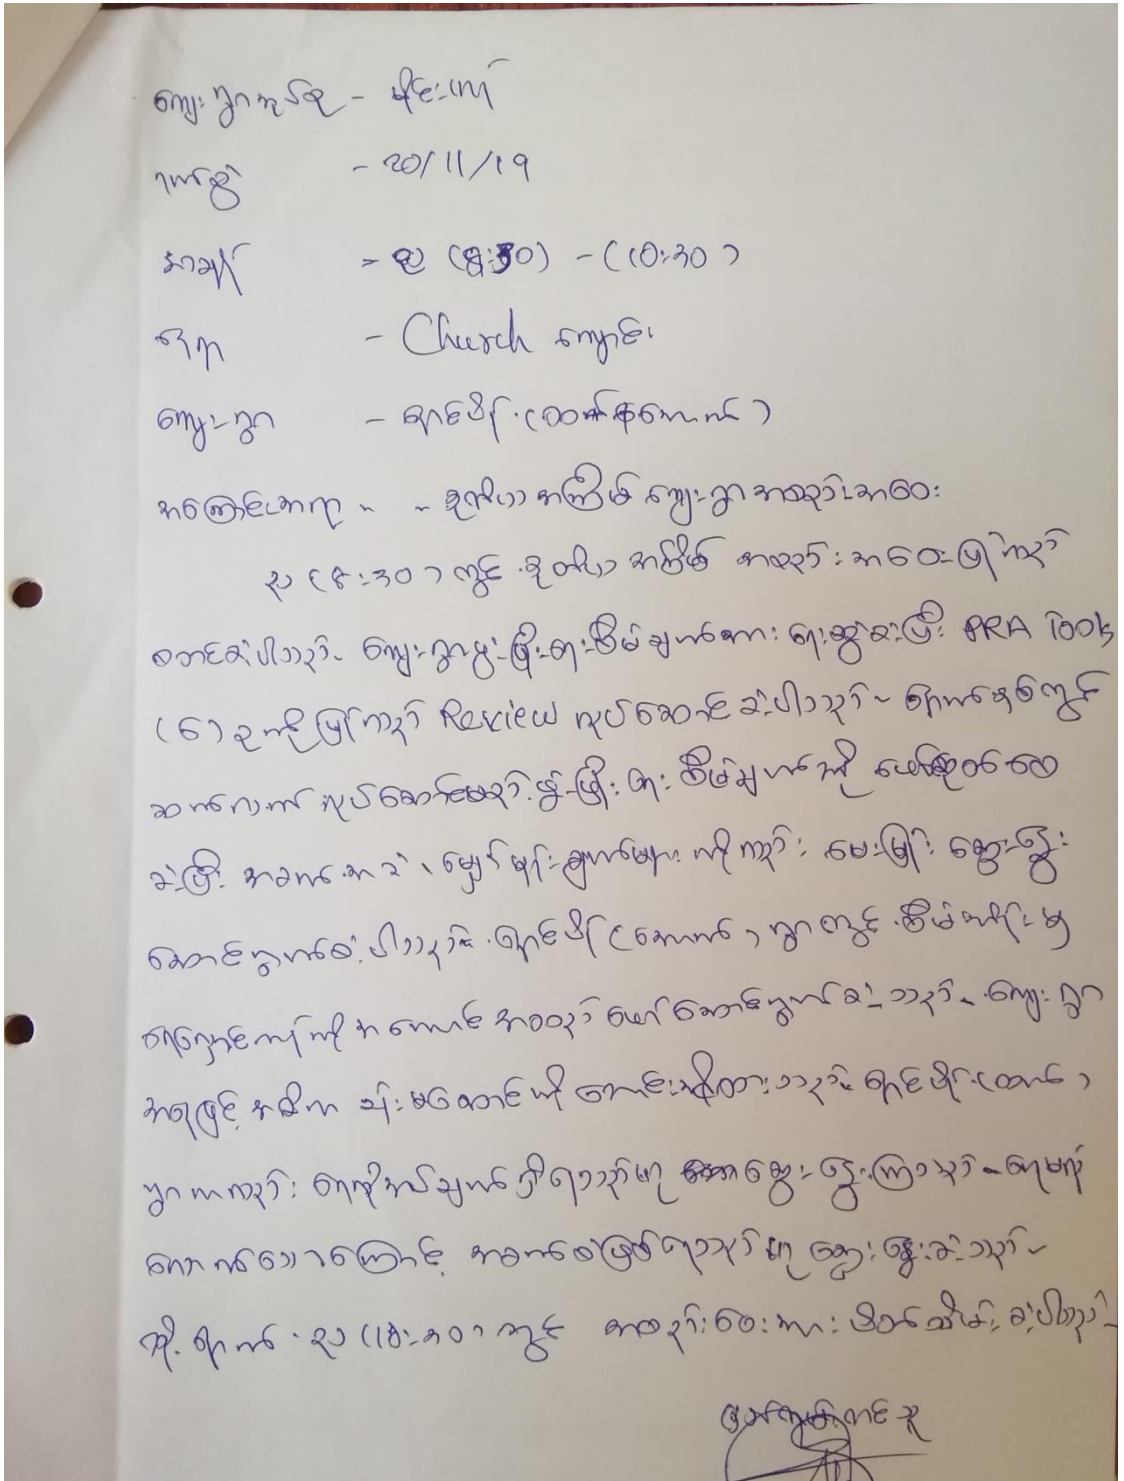 ကျေးရွာအုပ်စု - မိုင်းကော်
ရက်စွဲ - ၂၀/11/၁၉
အချိန် - ည (၅:၃၀) - (၁၀:၃၀)
နေရာ - Church ကျောင်း
ကျေးရွာ -
အကြောင်းအရာ - ဒုတိယ အကြိမ် ကျေးရွာ အစည်းအဝေး
ည (၈:၃၀) တွင် ဒုတိယ အကြိမ် အစည်းအဝေးပြုလုပ်
ခဲ့ပါသည်။ ကျေးရွာဖွံ့ဖြိုးရေးစီမံချက်အား ရေးဆွဲခဲ့ပြီး PRA Tools
(၆) ခုကို ပြန်လည် Review လုပ်ဆောင်ခဲ့ပါသည်။ နောက်နှစ်တွင်
ဆက်လက် လုပ်ဆောင်မည့် ဖွံ့ဖြိုးရေး စီမံချက်ကို
ခဲ့ပြီး အခက်အခဲ၊ မျှော်မှန်းချက်များ ကိုလည်း မေးမြန်း ဆွေးနွေး
ဆောင်ရွက်ခဲ့ပါသည်။ (အောက်) ရွာတွင် စီမံကိန်းမှ
အကောင်အထည်ဖော် ဆောင်ရွက်ခဲ့သည်။ ကျေးရွာ
အနေဖြင့် အဓိက သုံးမတောင်ကို တောင်းဆိုထားသည်။ (ထက်)
ရွာကလည်း ရေလိုအပ်ချက်ရှိနေသည်ဟု ဆွေးနွေးကြသည်။ ရေမလုံ
လောက်သောကြောင့် အခက်ခဲဖြစ်နေသည်ဟု ဆွေးနွေးခဲ့သည်။
ထို့နောက် ည (၁၀:၃၀) တွင် အစည်းဝေးအား ပိတ်သိမ်းခဲ့ပါသည်။